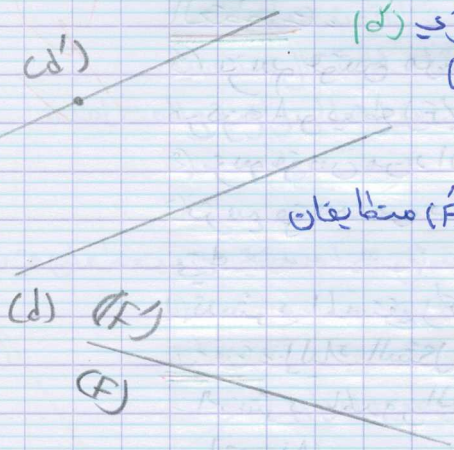 (d')
(d')
(F') متطابقان
(d)
(F')
(F)